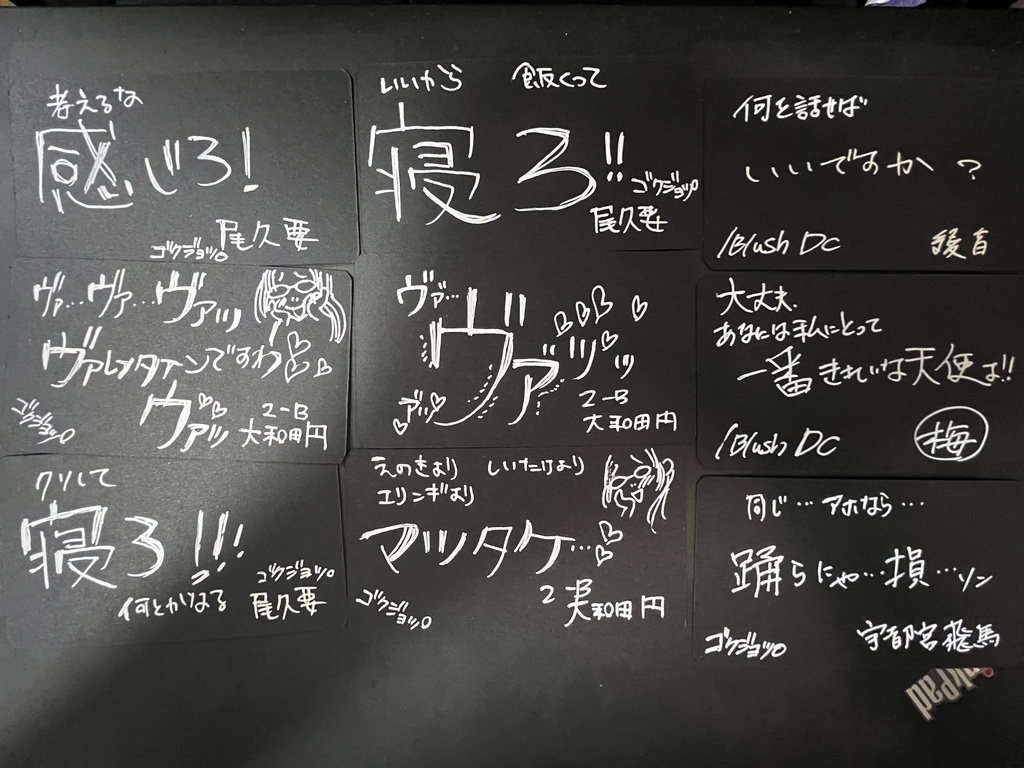 考えるな
感じろ!
ゴクジョッ。
尾久要
いいから 飯くって
寝ろ!!
ゴクジョッ。
尾久要
何を話せば
いいですか?
/Blush DC
ヴァ…ヴァ…ヴァッ
ヴァレンタインですわ
ヴァッ
ゴクジョッ。
2-B
大和田円
ヴァ…
ヴァッッッ
2-B
大和田円
大丈夫、
あなたは私にとって
一番きれいな天使よ!!
/Blush DC
梅
クソして
寝ろ!!!
ゴクジョッ。
何とかなる 尾久要
えのきより しいたけより
エリンギより
マツタケ…
ゴクジョッ。
2-B
大和田円
同じ…アホなら…
踊らにゃ…損…ソン
ゴクジョッ。
宇都宮飛馬